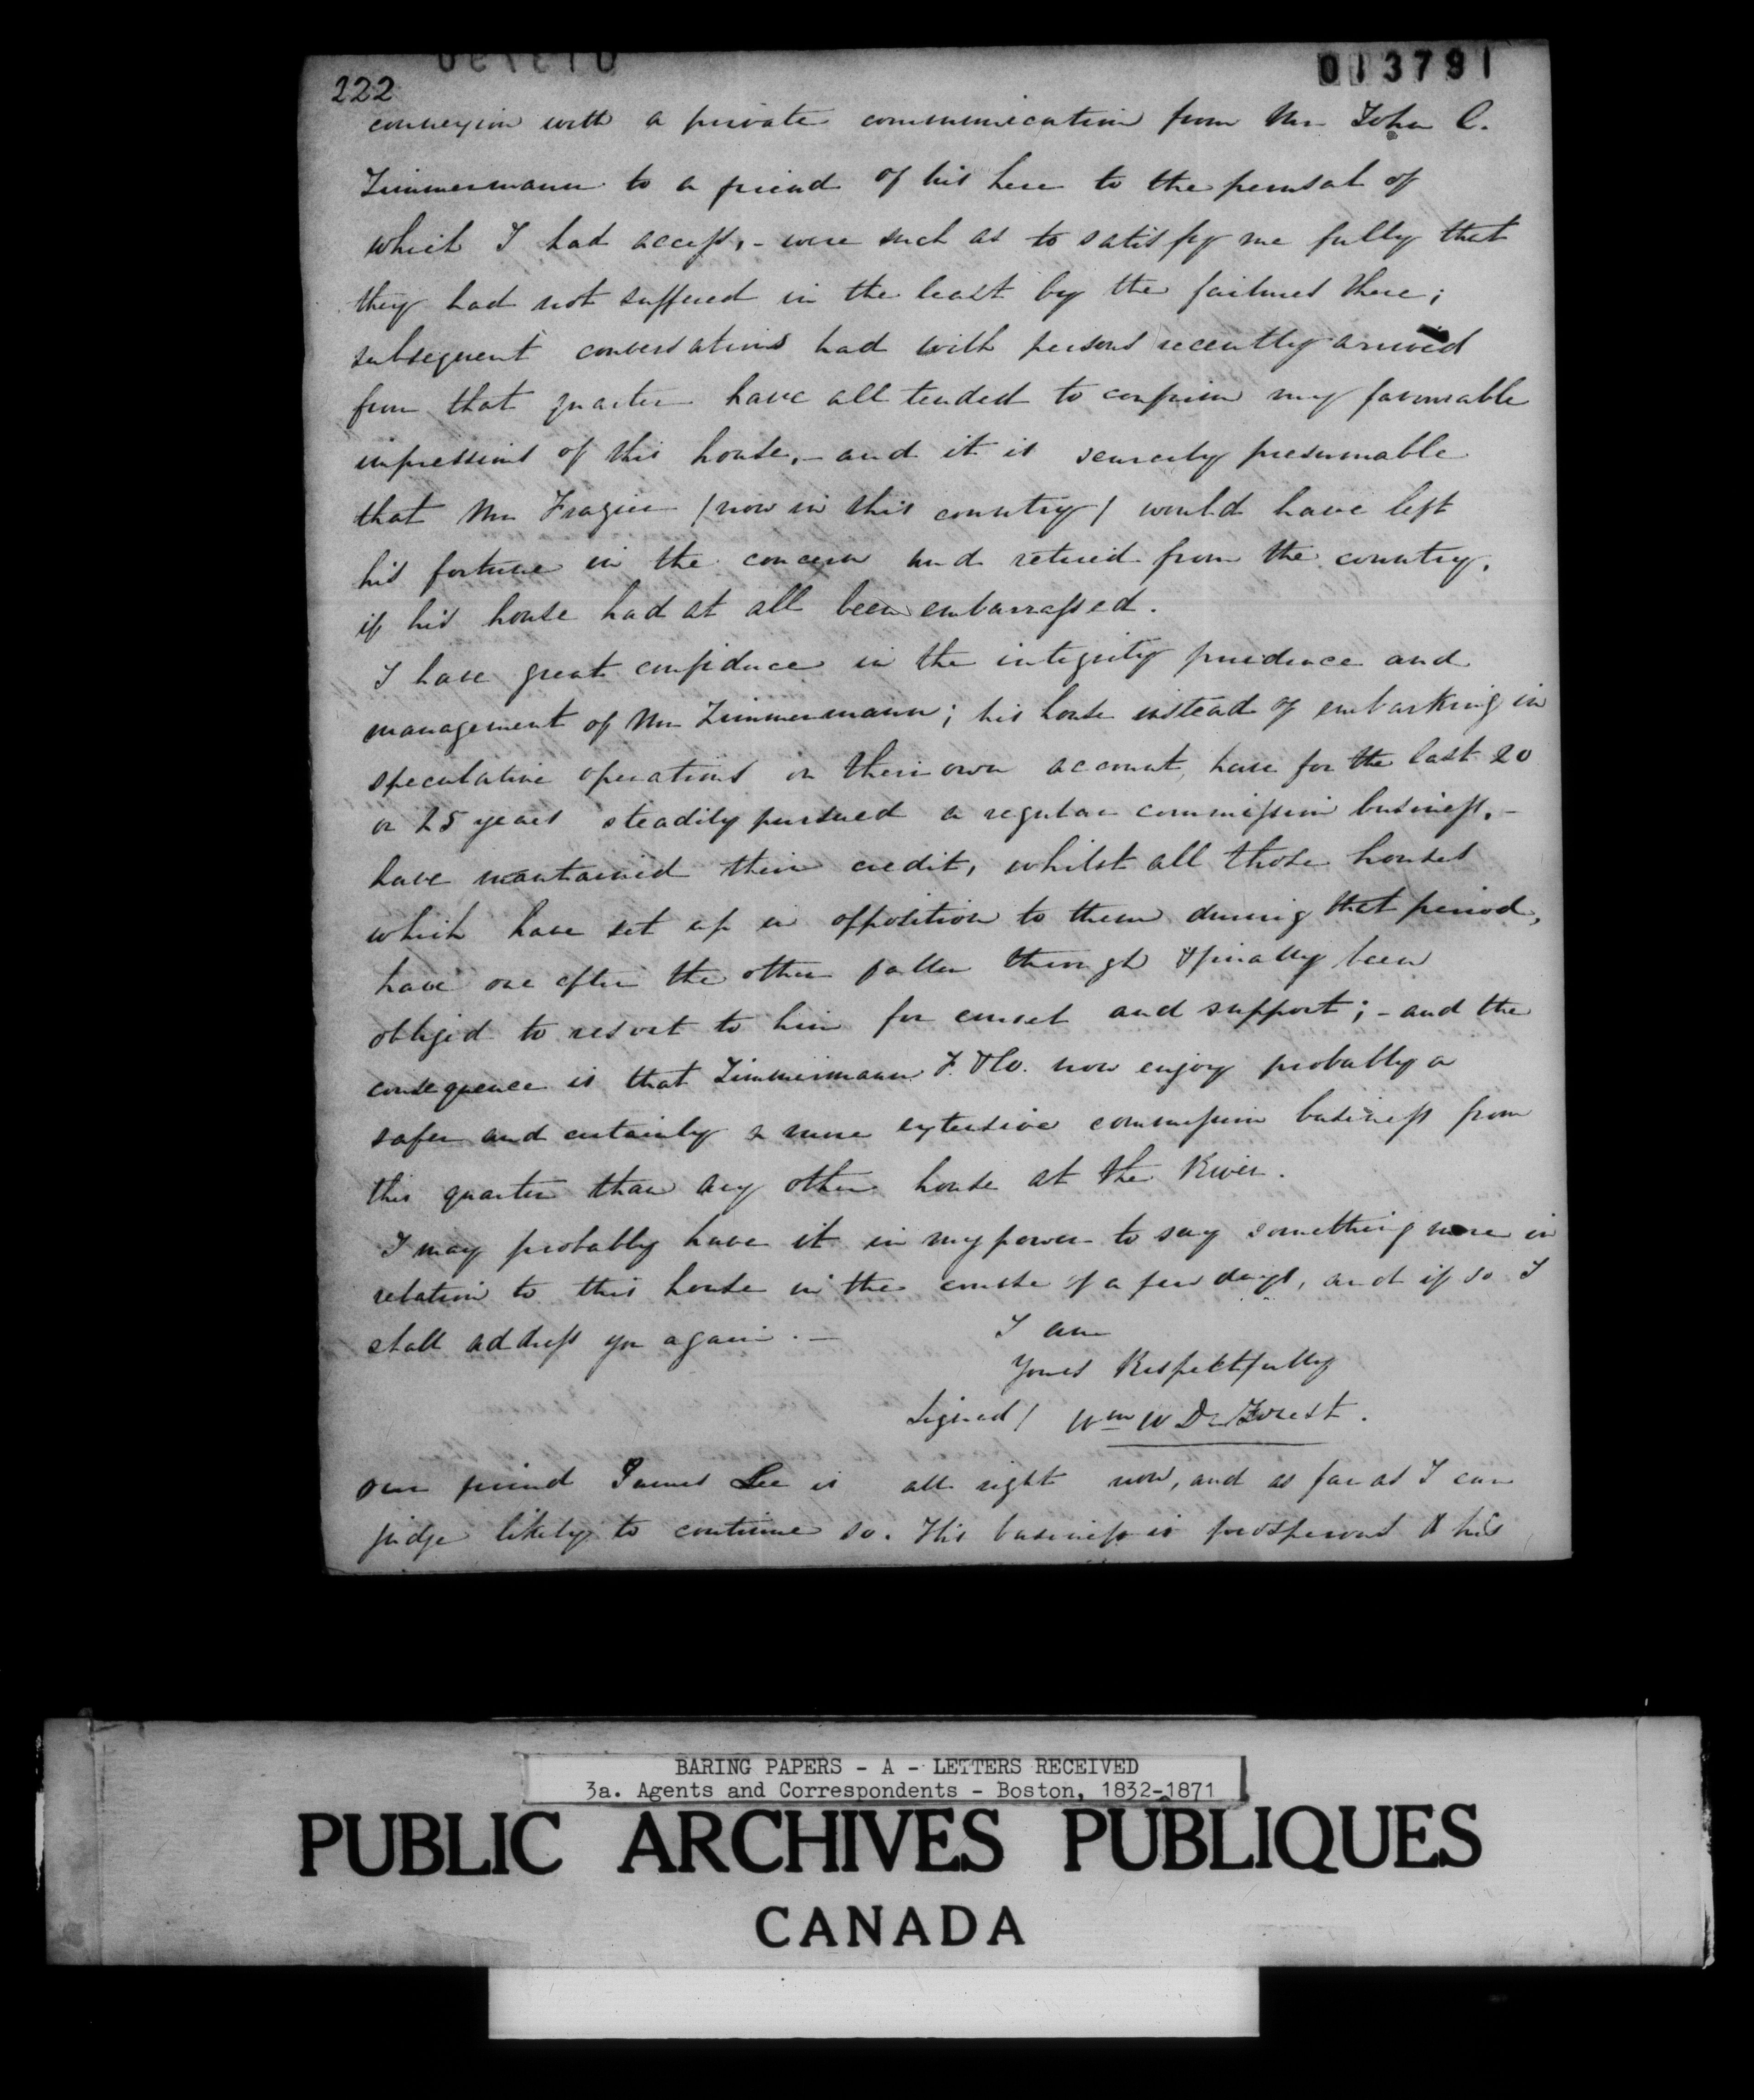 222
013791
connexion with a private communication from Mr John C.
Zimmermann to a friend of his here to the perusal of
which I had access, - were such as to satisfy me fully that
they had not suffered in the least by the failures there;
subsequent conversations had with persons recently arrived
from that quarter have all tended to confirm my favourable
impressions of this house, - and it is scarcely presumable
that Mr Frazier (now in this country) would have left
his fortune in the concern and retired from the country,
if his house had at all been embarrassed.
I have great confidence in the integrity prudence and
management of Mr Zimmermann; his house instead of embarking in
speculative operations on their own account, have for the last 20
or 25 years steadily pursued a regular commission business, -
have maintained their credit, whilst all those houses
which have set up in opposition to them during that period,
have one after the other fallen through & finally been
obliged to resort to him for counsel and support; - and the
consequence is that Zimmermann F. & Co. now enjoy probably a
safer and certainly a more extensive commission business from
this quarter than any other house at the River.
I may probably have it in my power to say something more in
relation to this house in the course of a few days, and if so I
shall address you again. -
I am
Yours Respectfully
Signed/ Wm W De Forest.
Our friend James Lee is all right now, and as far as I can
judge likely to continue so. His business is prosperous & his
BARING PAPERS - A - LETTERS RECEIVED
3a. Agents and Correspondents - Boston, 1832-1871
PUBLIC ARCHIVES PUBLIQUES
CANADA